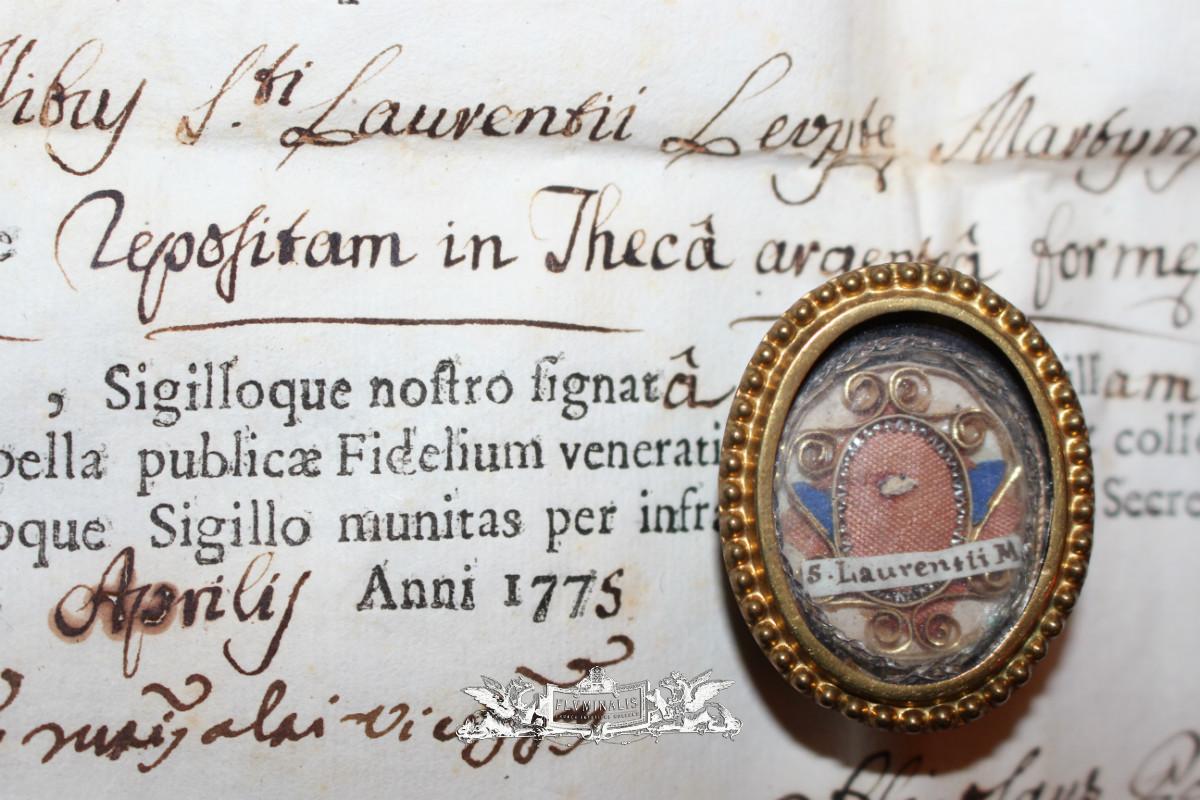 S.ti Laurentii Levytę Martyri
Repositam in Thecâ argenteâ formę
, Sigilloque noſtro ſignatâ illam
pella publicæ Fidelium venerati colloc
oque Sigillo munitas per infra Secre
Aprilis Anni 1775
S. Laurentii M.
FLVMINALIS